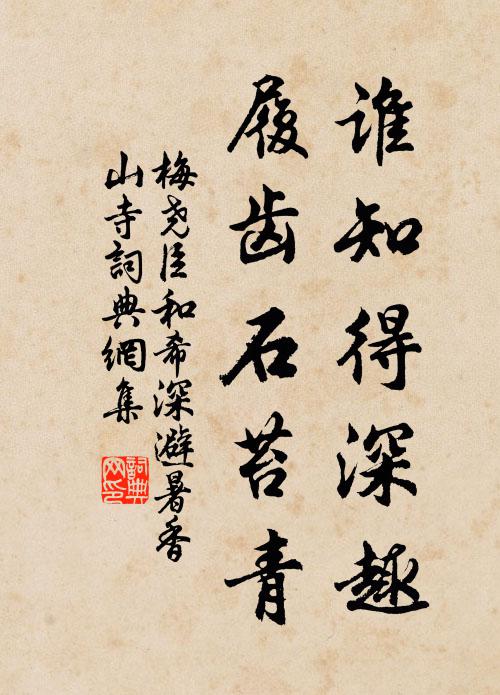 谁知得深趣
履齿石苔青
梅尧臣和希深避暑香
山寺詞典網集
詞典
网印